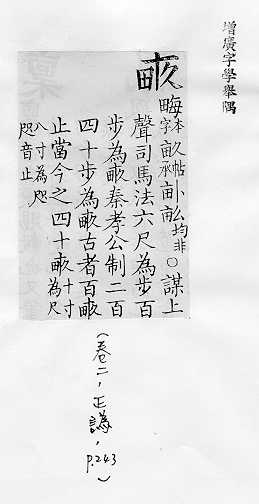 增廣字學舉隅
畞
畮本字畝帖承畆畒卟厶均非○謀上
聲司馬法六尺為步百
步為畞秦孝公制二百
四十步為畞古者百畞
止當今之四十畞十寸為尺
八寸為咫
咫音止
(卷二,正譌,
p.243)